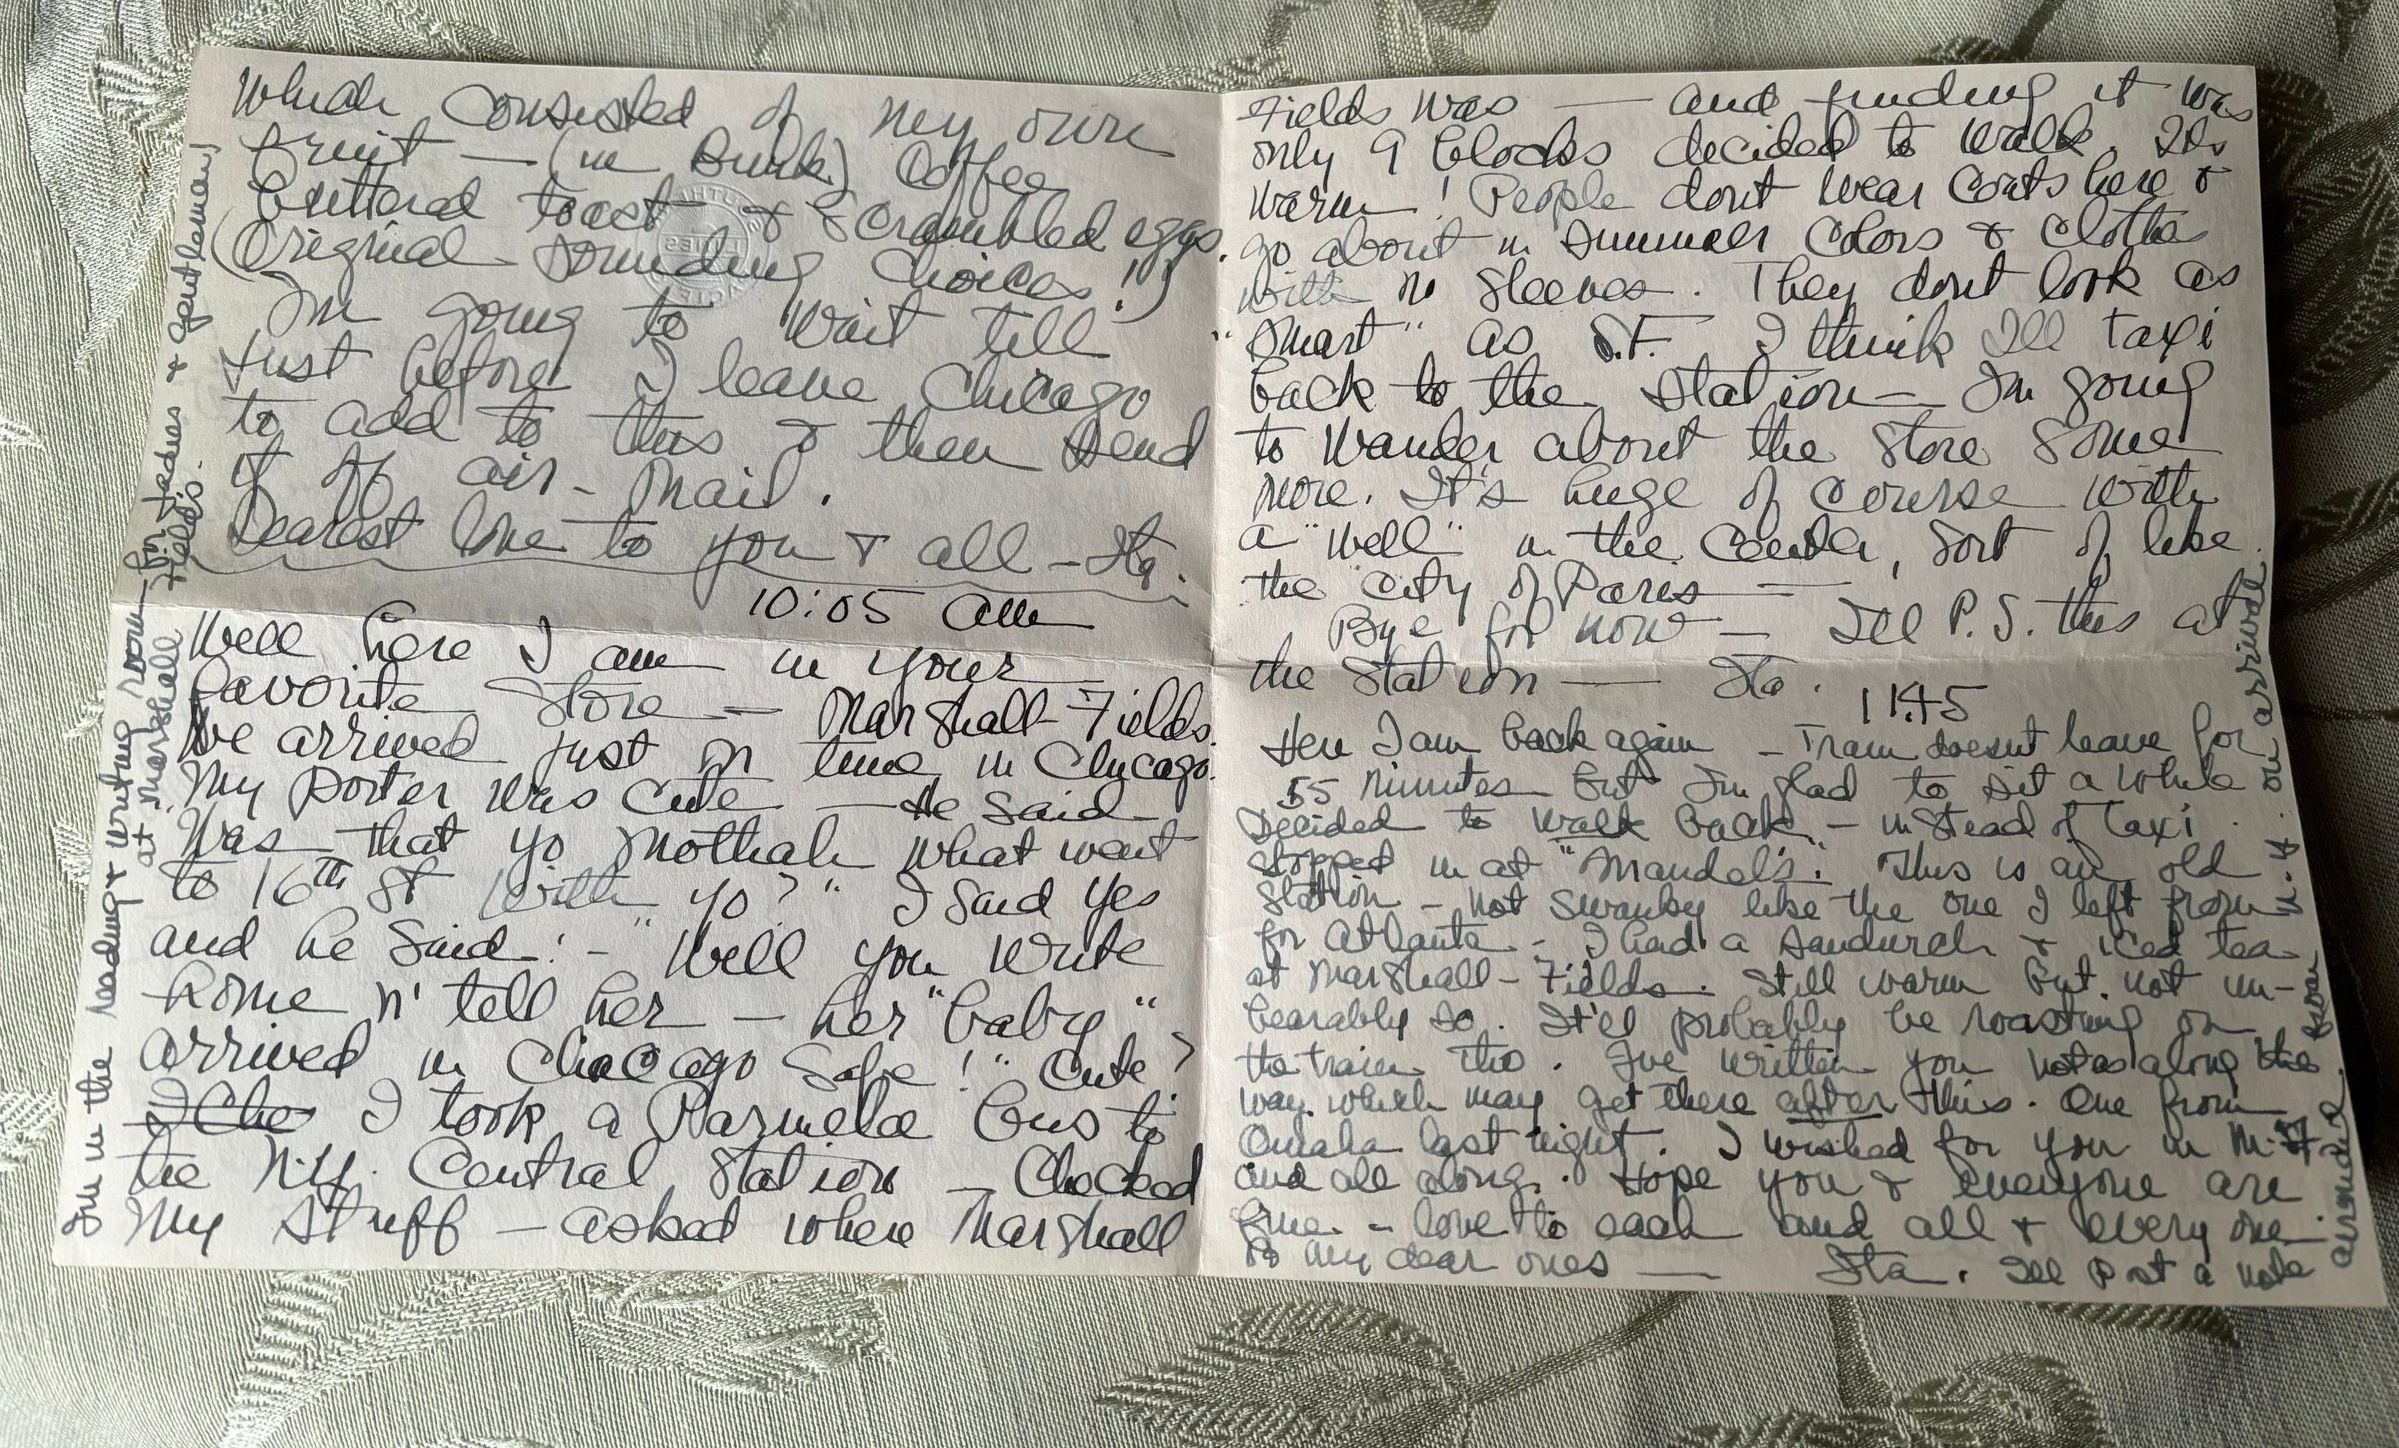 which consisted of my own
fruit — (in Bunk) Coffee
buttered toast & scrambled eggs.
(Original sounding choices!)
I'm going to wait till
just before I leave Chicago
to add to this & then send
it off air-mail.
Dearest love to you & all — Sta.
10:05 am
Well here I am in your
favorite store — Marshall-Fields.
We arrived just on time in Chicago.
My porter was cute — He said
"Was that yo Mothah what went
to 16th St with yo?" I said yes
and he said: - "Well you write
home n' tell her — her "baby"
arrived in Chicago safe!" Cute?
I Che I took a Parmelee bus to
the N.Y. Central Station — Checked
my stuff — asked where Marshall
I'm in the reading & writing room — for ladies & gentlemen)
at Marshall Field's.
Fields was — and finding it was
only 9 blocks decided to walk. Its
warm! People dont wear coats here &
go about in summer colors & clothes
with no sleeves. They dont look as
"smart" as S.F. I think I'll taxi
back to the station — I'm going
to wander about the store some
more. It's huge of course with
a "well" in the center, sort of like
the City of Paris —
Bye for now — I'll P.S. this at
the station — Sta.
11:45
Here I am back again — Train doesnt leave for
55 minutes but I'm glad to sit a while
Decided to walk back — instead of taxi.
stopped in at "Mandel's". This is an old
station — not swanky like the one I left from
for Atlanta — I had a sandwich & iced tea
at Marshall-Fields. Still warm but not un-
bearably so. It'll probably be roasting on
the train tho. I've written you notes along the
way which may get there after this. One from
Omaha last night. I wished for you in
and all along. Hope you & everyone are
fine — love to each and all & every one
of my dear ones — Sta. I'll post a note
airmail
on arrival